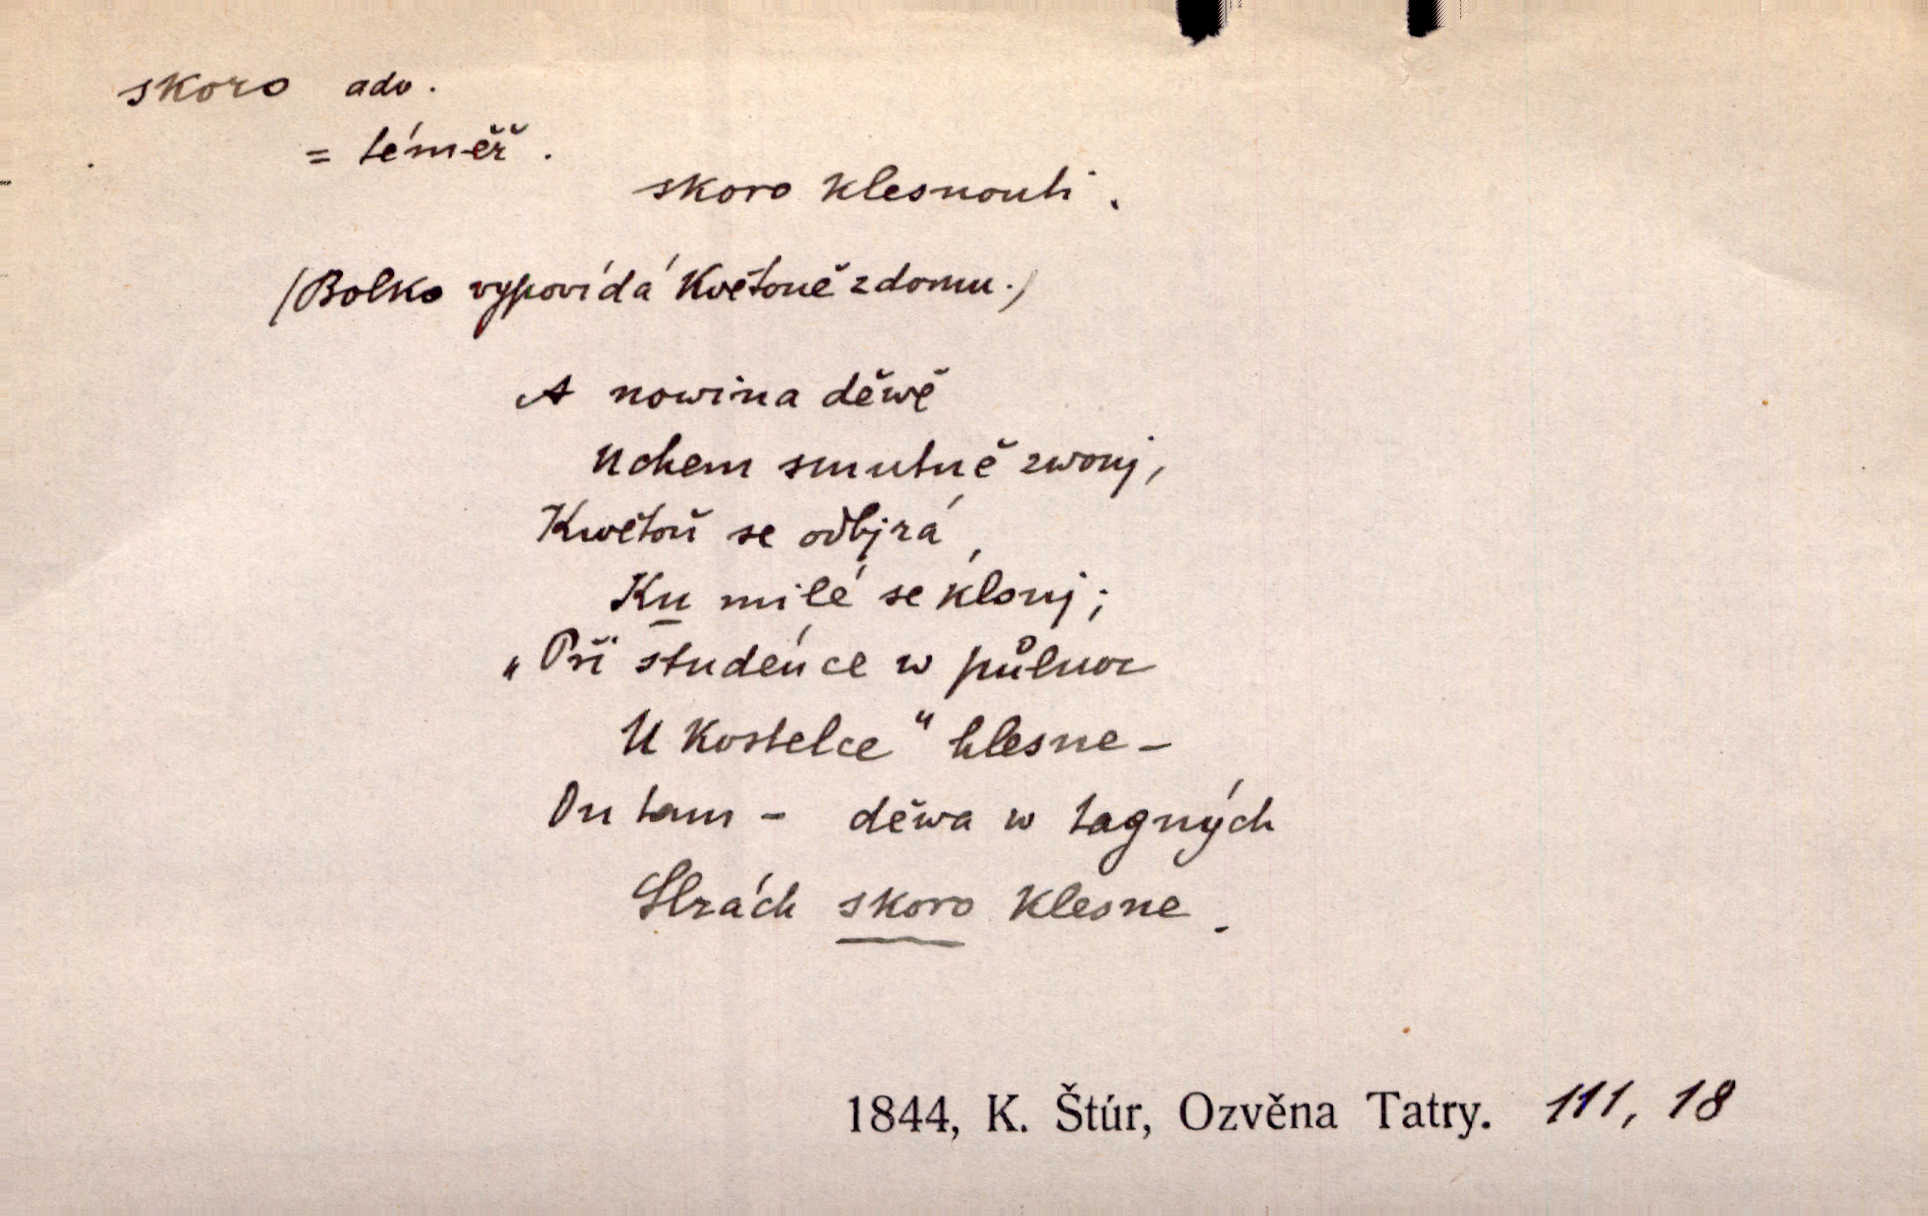 skoro adv.
= téměř.
skoro klesnouti.
(Bolko vypovídá Květoně z domu.)
A nowina děwě
Uchem smutně zwonj,
Kwětoň se odbjrá,
Ku milé se klonj;
„Při studénce w půlnoc
U kostelce“ hlesne –
On tam – děwa w tagných
Slzách skoro klesne.
1844, K. Štúr, Ozvěna Tatry. 111, 18